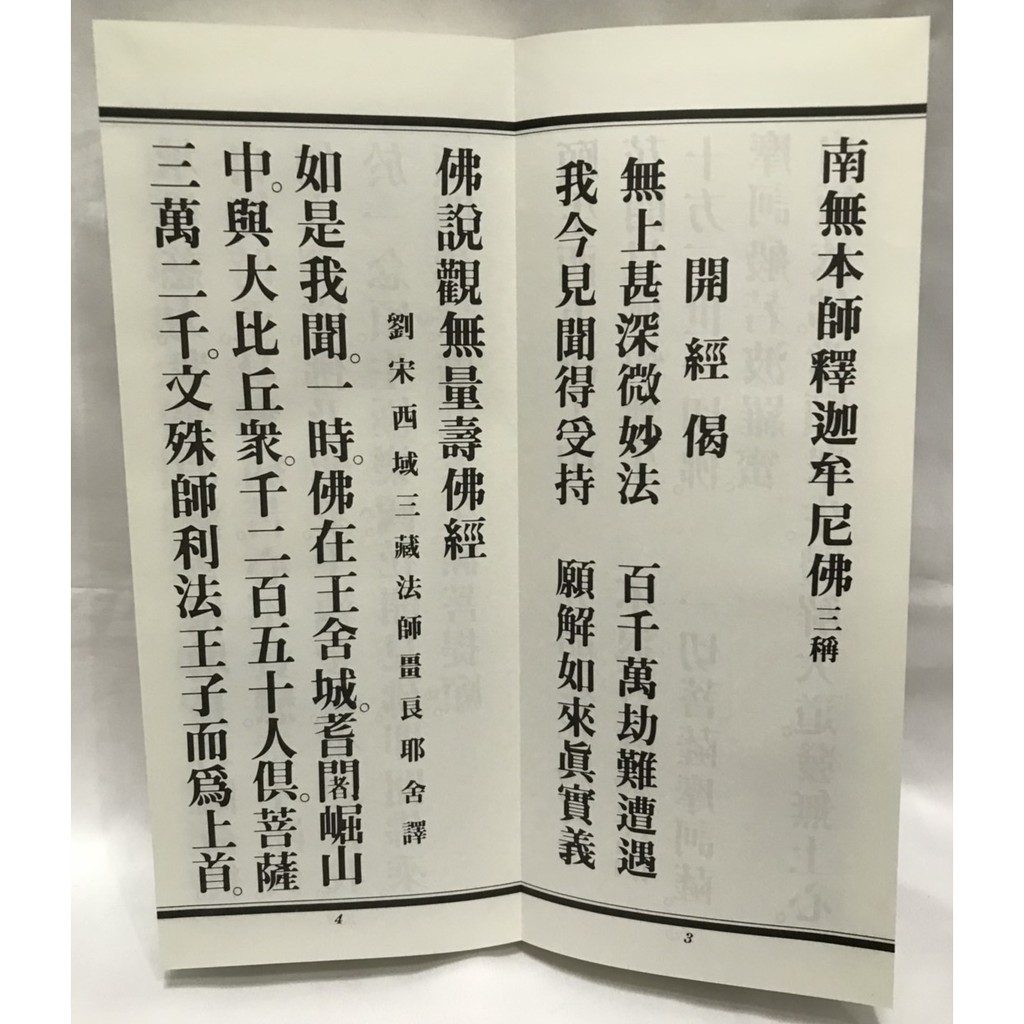 南無本師釋迦牟尼佛三稱
開經偈
無上甚深微妙法　百千萬劫難遭遇
我今見聞得受持　願解如來眞實義
3
佛說觀無量壽佛經
劉宋西域三藏法師畺良耶舍譯
如是我聞。一時。佛在王舍城。耆闍崛山
中。與大比丘衆。千二百五十人俱。菩薩
三萬二千。文殊師利法王子而爲上首。
4